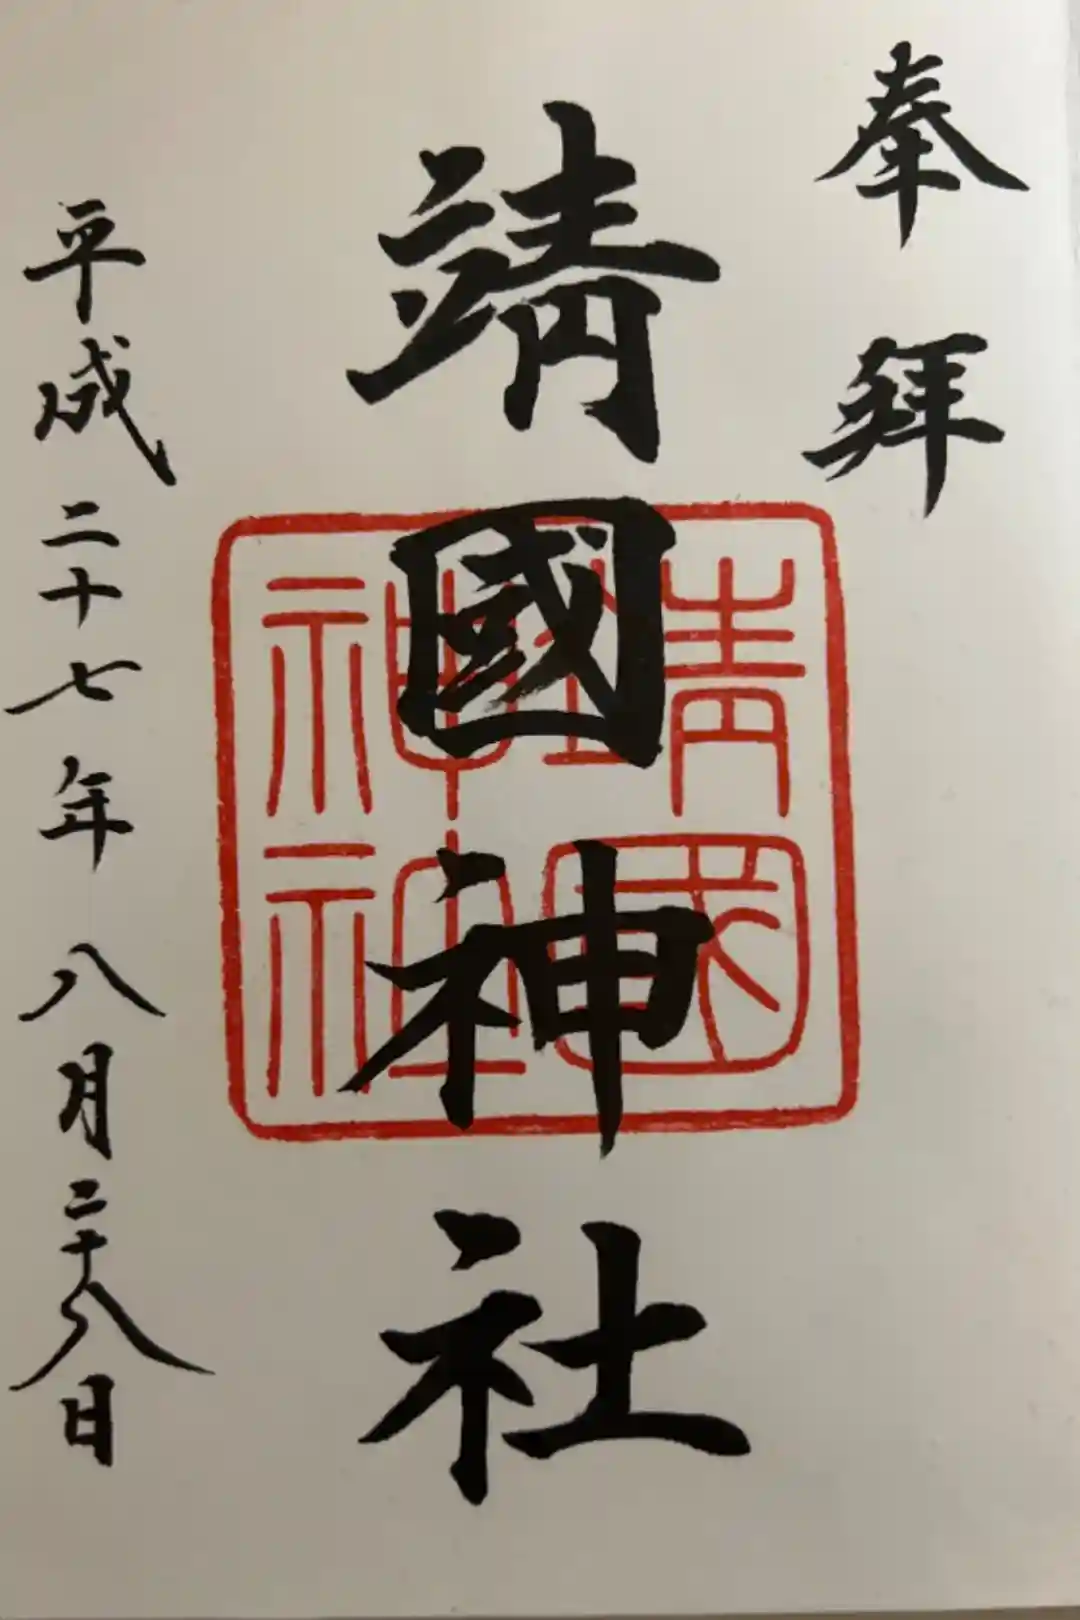 奉拜
靖國神社
靖国神社
平成二十七年八月二十八日